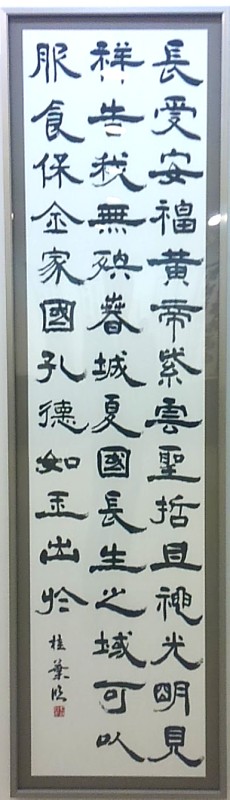 長受安福黄帝紫雲聖哲且神光明見
祥告我無殃春城夏國長生之域可以
服食保金家國孔德如玉出於
桂葉